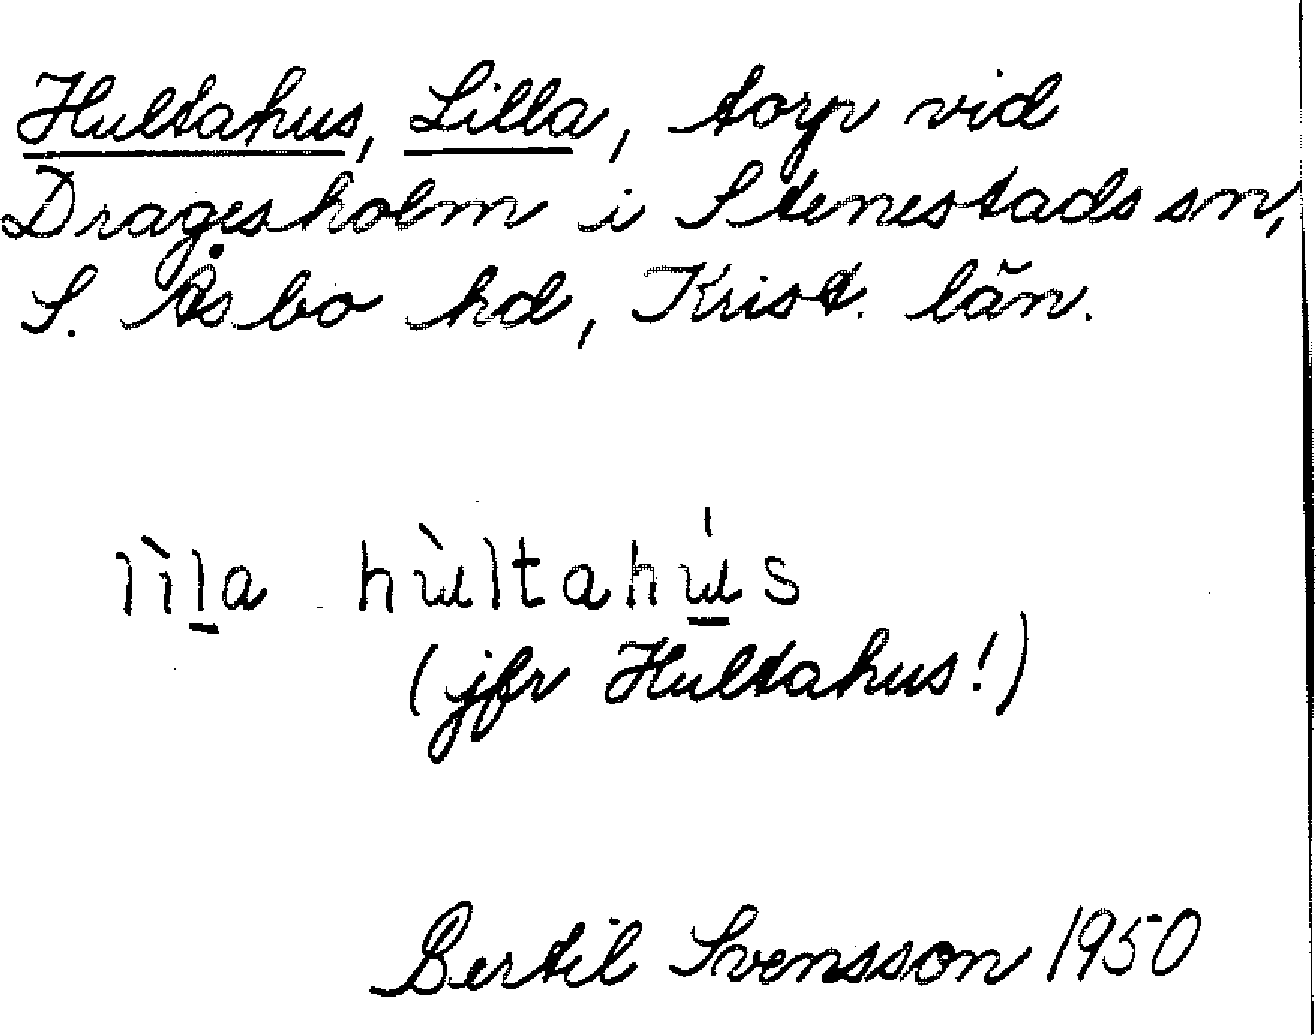 Hultahus, Lilla, torp vid
Dragesholm i Stenestads sn,
S. Åsbo hd, Krist. län.
lìl̠a hùltahú̠s
(jfr Hultahus!)
Bertil Svensson 1950